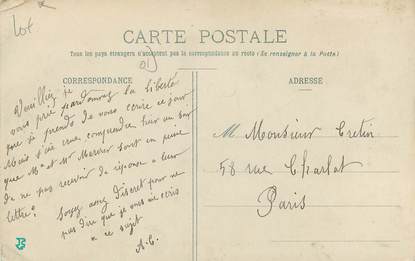 Lot
CARTE POSTALE
Tous les pays étrangers n'acceptent pas la correspondance au recto (Se renseigner à la Poste)
01
CORRESPONDANCE
ADRESSE
Veuillez je
vous prie pardonner la liberté
que je prends de vous écrire ce jour
Mais j'ai cru comprendre hier au soir
que Me et Mr Mercier sont en peine
de ne pas recevoir de réponse a leur
lettre.
Soyez assez discret pour ne
pas dire que je vous ai écris
a ce sujet
A. C.
M Monsieur Cretin
58 rue Charlot
Paris